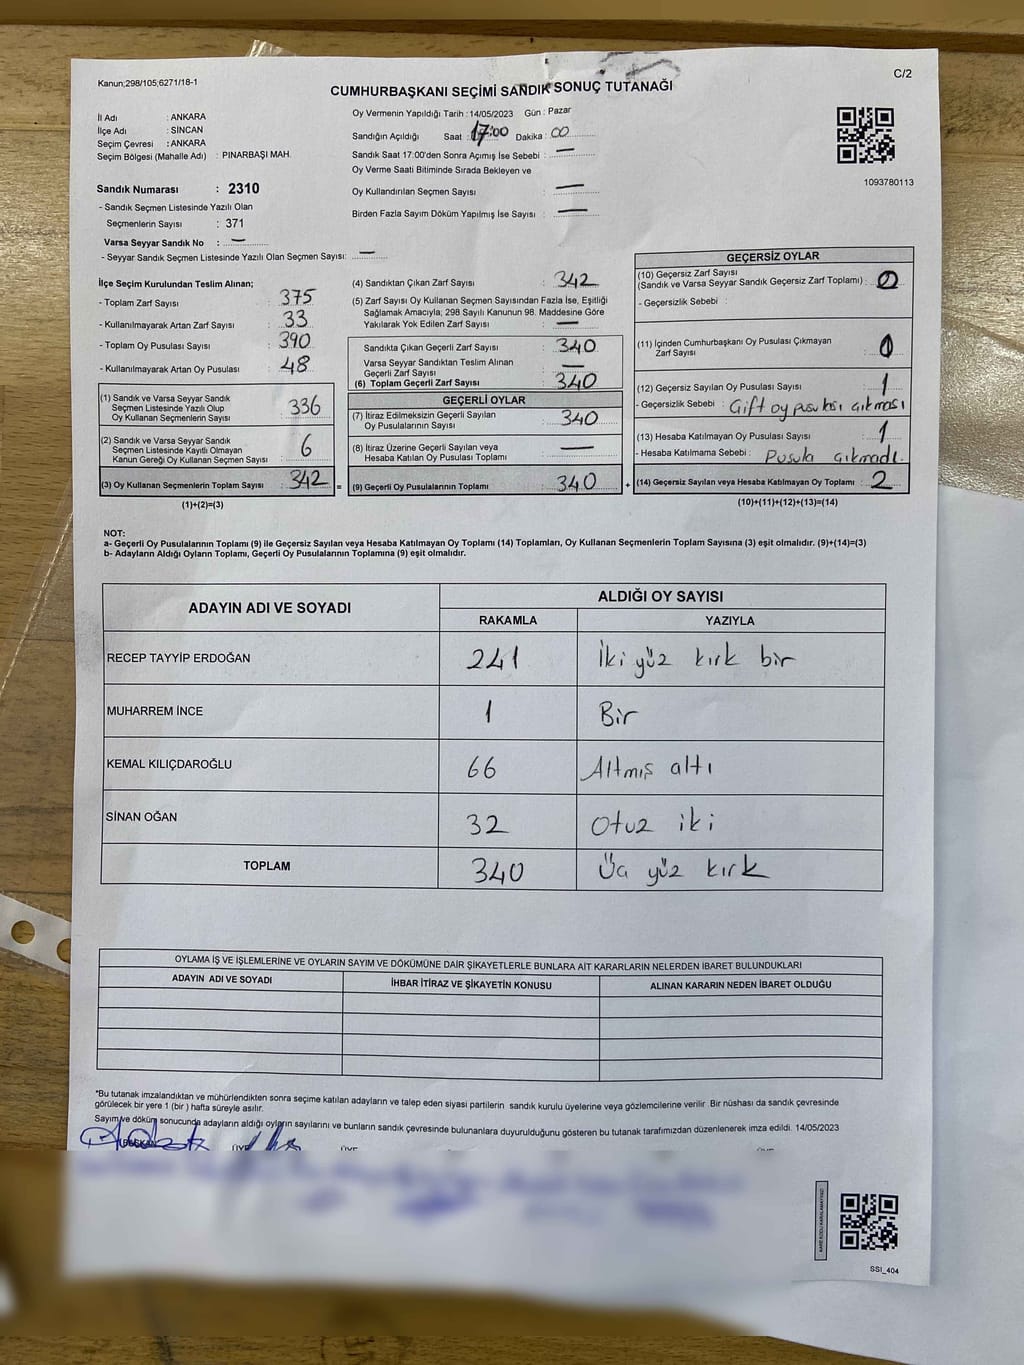 Kanun;298/105;6271/18-1
C/2
CUMHURBAŞKANI SEÇİMİ SANDIK SONUÇ TUTANAĞI
İl Adı : ANKARA
İlçe Adı : SİNCAN
Seçim Çevresi : ANKARA
Seçim Bölgesi (Mahalle Adı) : PINARBAŞI MAH.
Sandık Numarası : 2310
- Sandık Seçmen Listesinde Yazılı Olan
Seçmenlerin Sayısı : 371
Varsa Seyyar Sandık No : —
- Seyyar Sandık Seçmen Listesinde Yazılı Olan Seçmen Sayısı: —
Oy Vermenin Yapıldığı Tarih : 14/05/2023 Gün : Pazar
Sandığın Açıldığı Saat : 17:00 Dakika : 00
Sandık Saat 17:00'den Sonra Açımış İse Sebebi : —
Oy Verme Saati Bitiminde Sırada Bekleyen ve
Oy Kullandırılan Seçmen Sayısı : —
Birden Fazla Sayım Döküm Yapılmış İse Sayısı : —
1093780113
İlçe Seçim Kurulundan Teslim Alınan;
- Toplam Zarf Sayısı : 375
- Kullanılmayarak Artan Zarf Sayısı : 33
- Toplam Oy Pusulası Sayısı : 390
- Kullanılmayarak Artan Oy Pusulası : 48
(1) Sandık ve Varsa Seyyar Sandık
Seçmen Listesinde Yazılı Olup
Oy Kullanan Seçmenlerin Sayısı : 336
(2) Sandık ve Varsa Seyyar Sandık
Seçmen Listesinde Kayıtlı Olmayan
Kanun Gereği Oy Kullanan Seçmen Sayısı : 6
(3) Oy Kullanan Seçmenlerin Toplam Sayısı : 342 =
(1)+(2)=(3)
(4) Sandıktan Çıkan Zarf Sayısı : 342
(5) Zarf Sayısı Oy Kullanan Seçmen Sayısından Fazla İse, Eşitliği
Sağlamak Amacıyla; 298 Sayılı Kanunun 98. Maddesine Göre
Yakılarak Yok Edilen Zarf Sayısı : —
Sandıkta Çıkan Geçerli Zarf Sayısı : 340
Varsa Seyyar Sandıktan Teslim Alınan
Geçerli Zarf Sayısı : —
(6) Toplam Geçerli Zarf Sayısı : 340
GEÇERLİ OYLAR
(7) İtiraz Edilmeksizin Geçerli Sayılan
Oy Pusulalarının Sayısı : 340
(8) İtiraz Üzerine Geçerli Sayılan veya
Hesaba Katılan Oy Pusulası Toplamı : —
(9) Geçerli Oy Pusulalarının Toplamı : 340 +
GEÇERSİZ OYLAR
(10) Geçersiz Zarf Sayısı
(Sandık ve Varsa Seyyar Sandık Geçersiz Zarf Toplamı) : 0
- Geçersizlik Sebebi :
(11) İçinden Cumhurbaşkanı Oy Pusulası Çıkmayan
Zarf Sayısı : 0
(12) Geçersiz Sayılan Oy Pusulası Sayısı : 1
- Geçersizlik Sebebi : Çift oy pusulası çıkması
(13) Hesaba Katılmayan Oy Pusulası Sayısı : 1
- Hesaba Katılmama Sebebi : Pusula çıkmadı.
(14) Geçersiz Sayılan veya Hesaba Katılmayan Oy Toplamı : 2
(10)+(11)+(12)+(13)=(14)
NOT:
a- Geçerli Oy Pusulalarının Toplamı (9) ile Geçersiz Sayılan veya Hesaba Katılmayan Oy Toplamı (14) Toplamları, Oy Kullanan Seçmenlerin Toplam Sayısına (3) eşit olmalıdır. (9)+(14)=(3)
b- Adayların Aldığı Oyların Toplamı, Geçerli Oy Pusulalarının Toplamına (9) eşit olmalıdır.
ADAYIN ADI VE SOYADI
ALDIĞI OY SAYISI
RAKAMLA YAZIYLA
RECEP TAYYİP ERDOĞAN 241 İki yüz kırk bir
MUHARREM İNCE 1 Bir
KEMAL KILIÇDAROĞLU 66 Altmış altı
SİNAN OĞAN 32 Otuz iki
TOPLAM 340 Üç yüz kırk
OYLAMA İŞ VE İŞLEMLERİNE VE OYLARIN SAYIM VE DÖKÜMÜNE DAİR ŞİKAYETLERLE BUNLARA AİT KARARLARIN NELERDEN İBARET BULUNDUKLARI
ADAYIN ADI VE SOYADI İHBAR İTİRAZ VE ŞİKAYETİN KONUSU ALINAN KARARIN NEDEN İBARET OLDUĞU
*Bu tutanak imzalandıktan ve mühürlendikten sonra seçime katılan adayların ve talep eden siyasi partilerin sandık kurulu üyelerine veya gözlemcilerine verilir. Bir nüshası da sandık çevresinde
görülecek bir yere 1 (bir ) hafta süreyle asılır.
Sayım ve döküm sonucunda adayların aldığı oyların sayılarını ve bunların sandık çevresinde bulunanlara duyurulduğunu gösteren bu tutanak tarafımızdan düzenlenerek imza edildi. 14/05/2023
BAŞKAN ÜYE ÜYE ÜYE
SSI_404